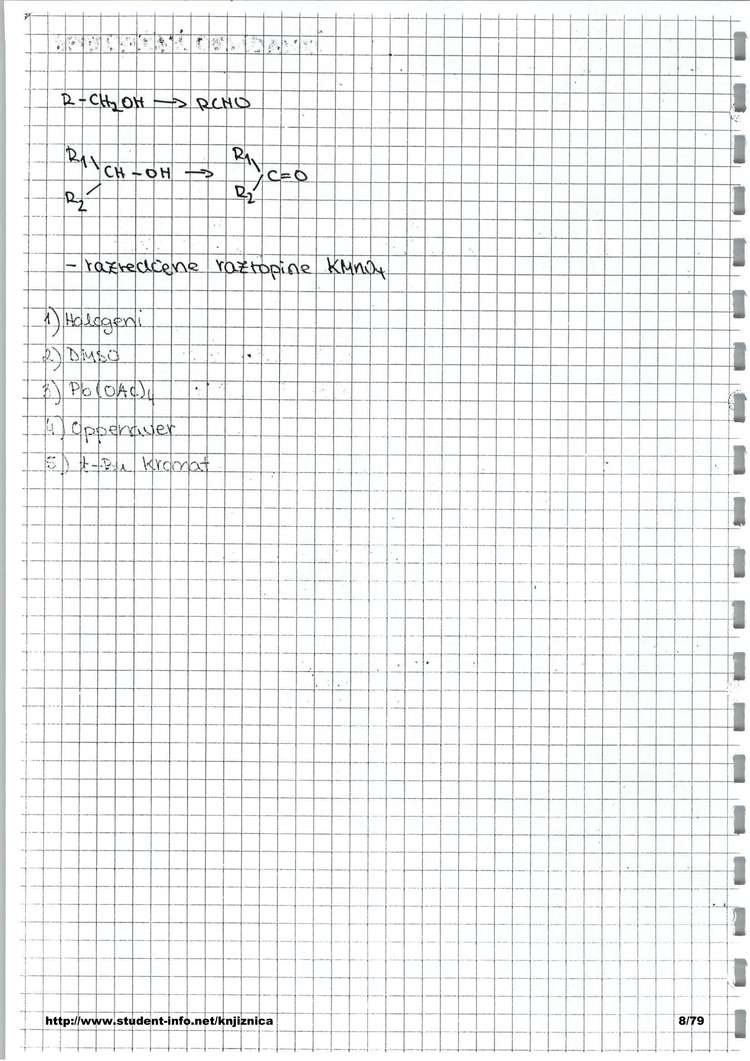 R-CH₂OH → RCHO
R1 R1
CH-OH → C=O
R2 R2
- razredčene raztopine KMnO₄
1) Halogeni
2) DMSO
3) Pb(OAc)₄
4) Oppenauer
5) t-Bu kromat
http://www.student-info.net/knjiznica 8/79